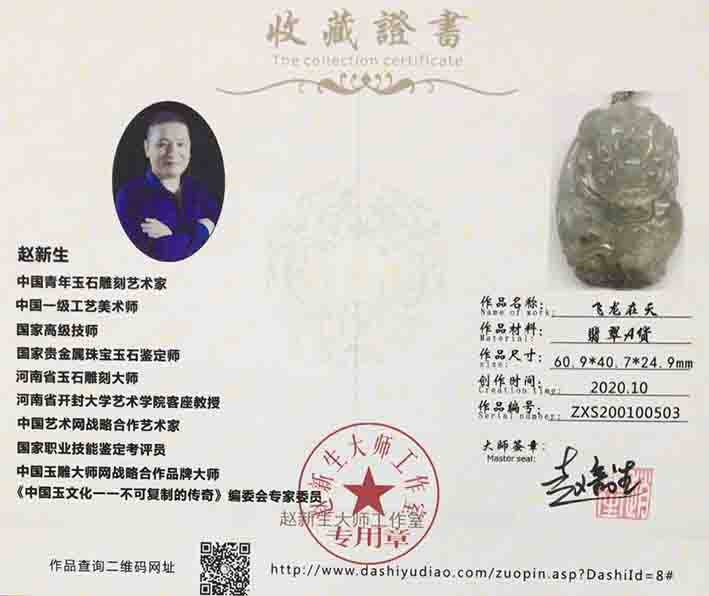 收藏證書
The collection certificate
赵新生
中国青年玉石雕刻艺术家
中国一级工艺美术师
国家高级技师
国家贵金属珠宝玉石鉴定师
河南省玉石雕刻大师
河南省开封大学艺术学院客座教授
中国艺术网战略合作艺术家
国家职业技能鉴定考评员
中国玉雕大师网战略合作品牌大师
《中国玉文化一一不可复制的传奇》编委会专家委员
作品名称： 飞龙在天
Name of work:
作品材料： 翡翠A货
Material:
作品尺寸： 60.9*40.7*24.9mm
size:
创作时间： 2020.10
Creation time:
作品编号： ZXS200100503
Serial number:
大师签章：
Master seal:
赵新生
赵新生大师工作室
专用章
赵新生大师工作室
作品查询二维码网址
http://www.dashiyudiao.com/zuopin.asp?DashiId=8#